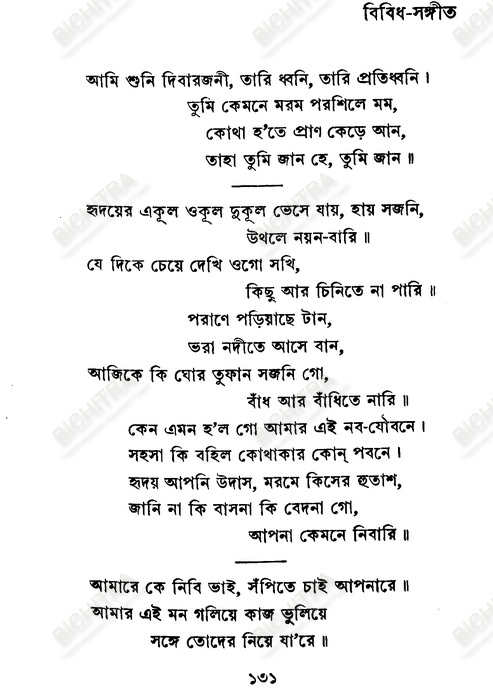 বিবিধ-সঙ্গীত
আমি শুনি দিবারজনী, তারি ধ্বনি, তারি প্রতিধ্বনি।
তুমি কেমনে মরম পরশিলে মম,
কোথা হ'তে প্রাণ কেড়ে আন,
তাহা তুমি জান হে, তুমি জান॥
হৃদয়ের একূল ওকূল দুকূল ভেসে যায়, হায় সজনি,
উথলে নয়ন-বারি॥
যে দিকে চেয়ে দেখি ওগো সখি,
কিছু আর চিনিতে না পারি॥
পরাণে পড়িয়াছে টান,
ভরা নদীতে আসে বান,
আজিকে কি ঘোর তুফান সজনি গো,
বাঁধ আর বাঁধিতে নারি॥
কেন এমন হ'ল গো আমার এই নব-যৌবনে।
সহসা কি বহিল কোথাকার কোন্ পবনে।
হৃদয় আপনি উদাস, মরমে কিসের হুতাশ,
জানি না কি বাসনা কি বেদনা গো,
আপনা কেমনে নিবারি॥
আমারে কে নিবি ভাই, সঁপিতে চাই আপনারে॥
আমার এই মন গলিয়ে কাজ ভুলিয়ে
সঙ্গে তোদের নিয়ে যা'রে॥
১৩১
BICHITRA